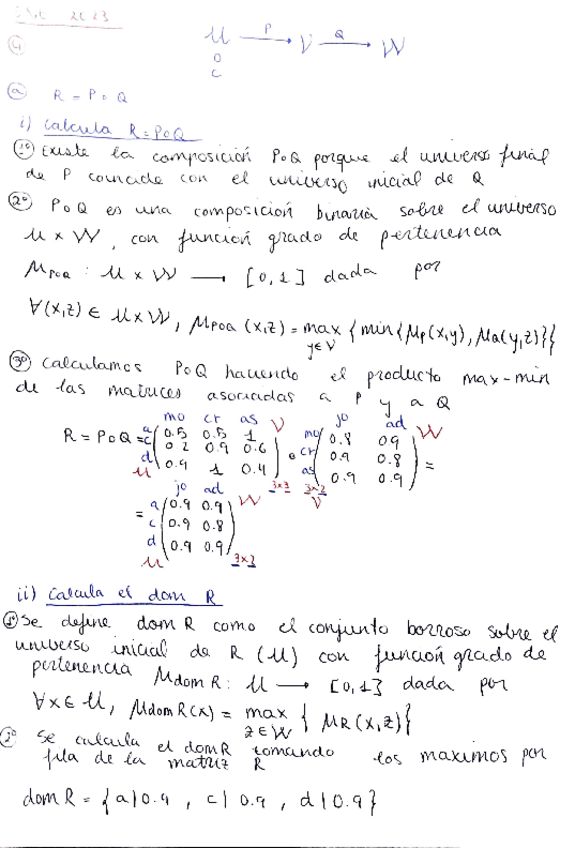 ENE 2023
4
U P V Q W
O
C
a R = P∘Q
i) Calcula R=P∘Q
1º Existe la composición P∘Q porque el universo final
de P coincide con el universo inicial de Q
2º P∘Q es una composición binaria sobre el universo
U × W, con función grado de pertenencia
μP∘Q : U × W → [0,1] dada por
∀(x,z) ∈ U×W, μP∘Q (x,z) = max {min{μP(x,y), μQ(y,z)}}
y∈V
3º Calculamos P∘Q haciendo el producto max-min
de las matrices asociadas a P y a Q
mo cr as V jo ad W
R = P∘Q = a 0.5 0.5 1 ∘ mo 0.8 0.9 =
c 0.2 0.9 0.6 cr 0.9 0.8
d 0.9 1 0.4 as 0.9 0.9
U 3x3 3x2 V
jo ad
= a 0.9 0.9 W
c 0.9 0.8
d 0.9 0.9
U 3x2
ii) Calcula el dom R
1º Se define dom R como el conjunto borroso sobre el
universo inicial de R (U) con función grado de
pertenencia μdom R : U → [0,1] dada por
∀x∈U, μdom R(x) = max { μR(x,z)}
z∈W
2º Se calcula el dom R tomando los maximos por
fila de la matriz R
dom R = {a|0.9 , c|0.9 , d|0.9}